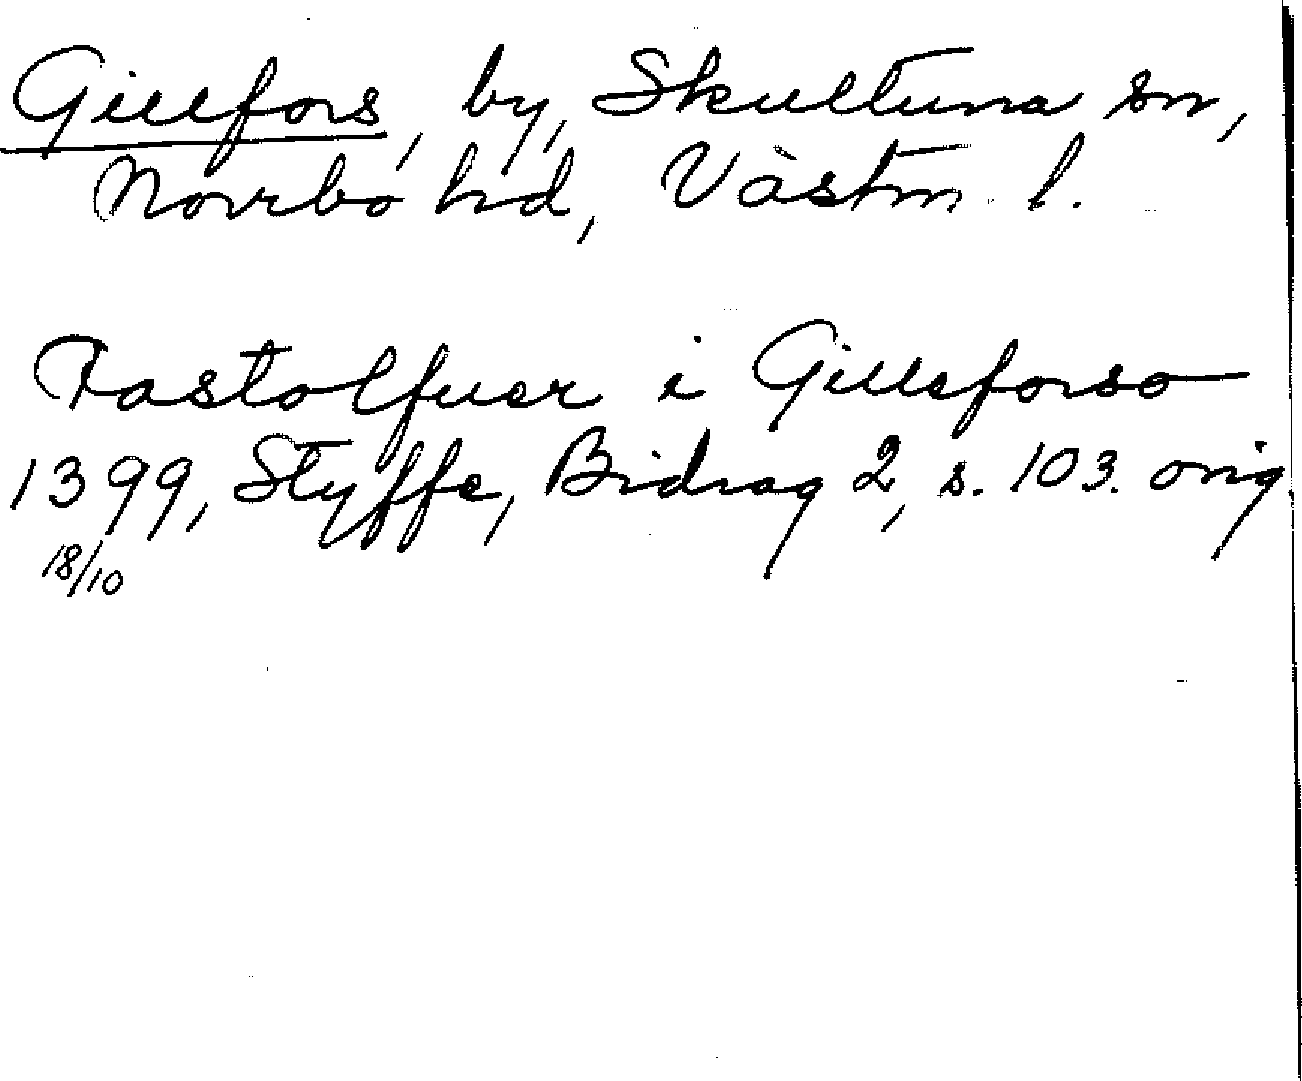 Gillfors, by, Skultuna sn,
Norrbo hd, Västm. l.
Fastolfuer i Gillsforso
1399, Styffe, Bidrag 2, s. 103. orig
18/10